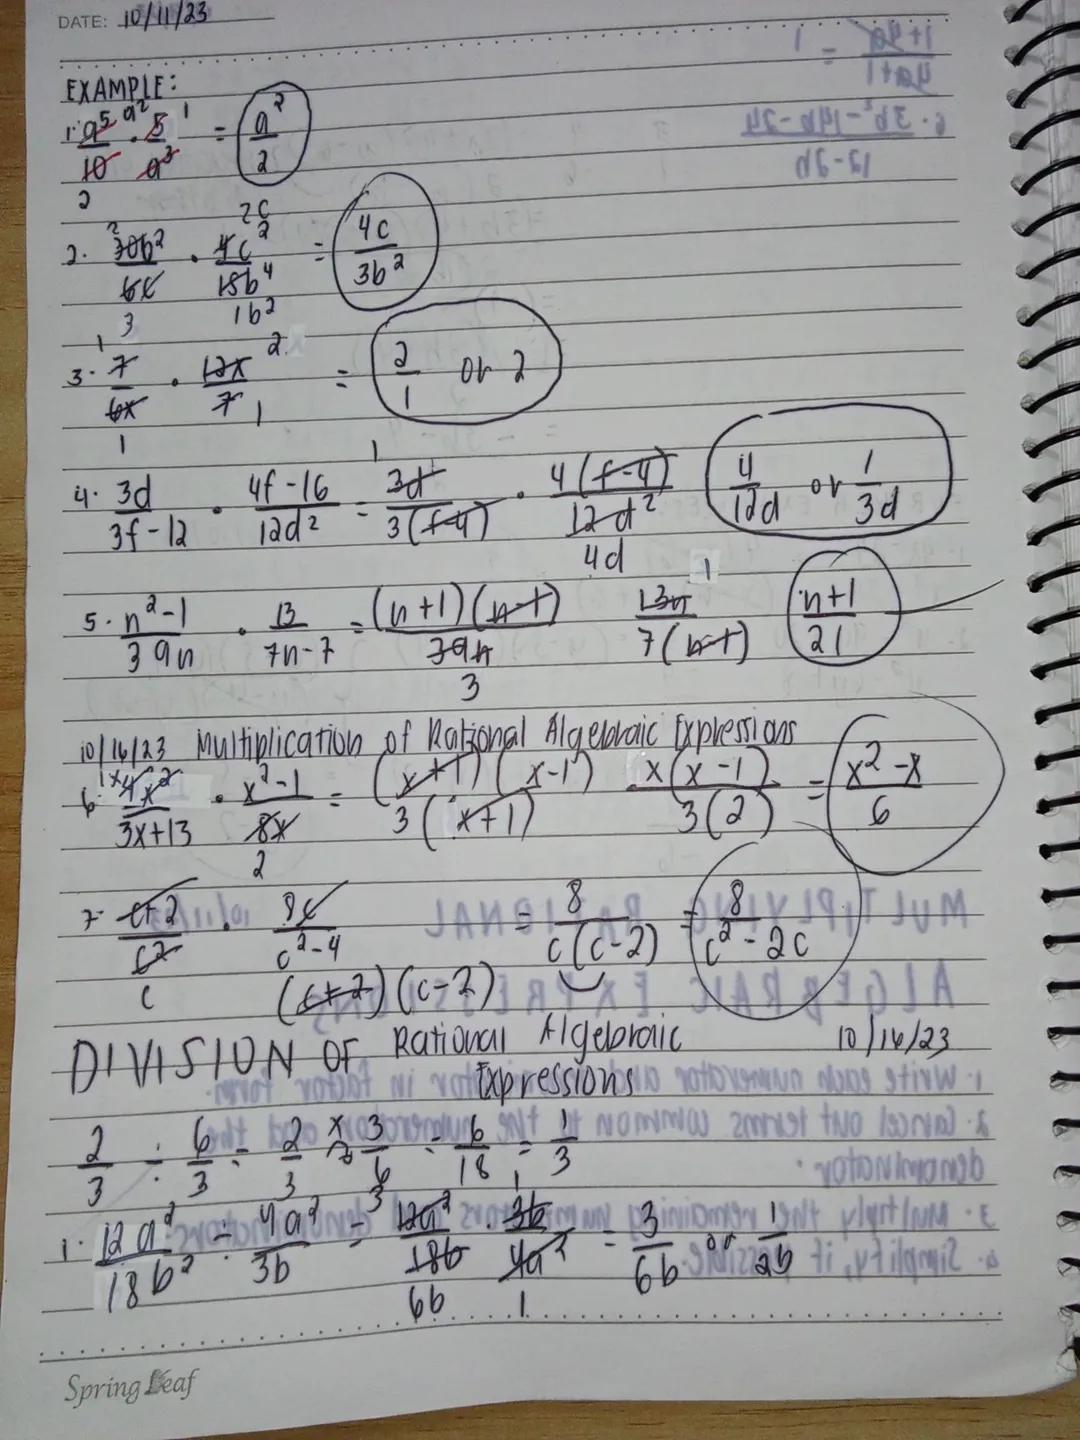 DATE: 10/11/23
EXAMPLE:
1. a^5/10 · 5/a^3 = a^2/2
a^2 1
2
2. 30b^2/6c · 4c^2/18b^4 = 4c/3b^2
2 2c
3 1b^2
3. 7/6x · 12x/7 = 2/1 or 2
1 2
1 1
4. 3d/3f-12 · 4f-16/12d^2 = 3d/3(f-4) · 4(f-4)/12d^2 4/12d or 1/3d
1 4d
5. n^2-1/39n · 13/7n-7 = (n+1)(n-1)/39n 13n/7(n-1) n+1/21
3 1
10/16/23 Multiplication of Rational Algebraic Expressions
6. 4x^2/3x+13 · x^2-1/8x = (x+1)(x-1)/3(x+1) x(x-1)/3(2) = x^2-x/6
1x 2
7. c+2/c^2 · 8c/c^2-4 = 8/c(c-2) = 8/c^2-2c
c (c+2)(c-2)
DIVISION OF Rational Algebraic Expressions 10/16/23
2/3 ÷ 6/3 = 2/3 x 3/6 = 6/18 = 1/3
1. 12a^2/18b^2 ÷ 4a^2/3b = 12a^2/18b · 3b/4a^2 = 3/6b or 1/2b
3 1
6b 1
Spring Leaf